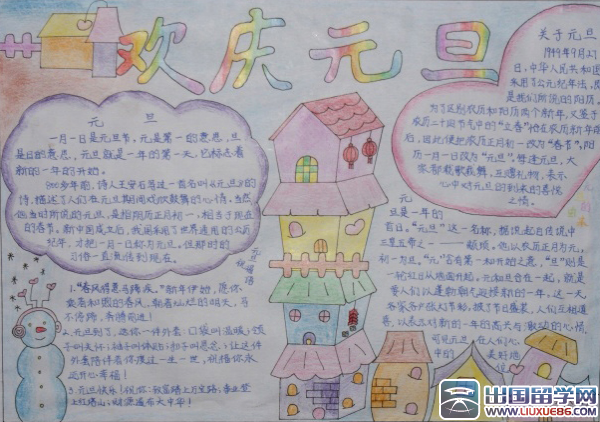 欢庆元旦
元 旦
一月一日是元旦节，元是第一的意思，旦
是日的意思，元旦就是一年的第一天，它标志着
新的一年的开始。
900多年前，诗人王安石写过一首名叫《元旦》的
诗，描述了人们在元旦期间欢欣鼓舞的心情。当然
他当时所说的元旦，是指阴历正月初一，相当于现在
的春节，新中国成立后，我国采用了世界通用的公历
纪年，才把一月一日称为元旦，但那时的
习俗一直流传到现在。
关于元旦
1949年9月27
日，中华人民共和国
采用了公元纪年法，即
是我们所说的阳历。
为了区别农历和阳历两个新年，又鉴于
农历二十四节气中的“立春”恰在农历新年前
后，因此便把农历正月初一改为“春节”，阳
历一月一日改为“元旦”。每逢元旦，大
家都载歌载舞，互赠礼物，表示
心中对元旦的到来的喜悦
之情。
元旦祝福语
1.“春风得意马蹄疾。”新年伊始，愿你
马不停蹄，奔腾前进！
2.元旦到了，送你一件外套：口袋叫温暖；领
子叫关怀；袖子叫体贴；扣子叫思念；让这件
外套陪伴着你度过一生一世，祝福你永
远开心幸福！
3.元旦快乐！祝你：
元
旦是一年的
首日，“元旦”这一名称，据说起自传说中
三皇五帝之一——颛顼，他以农历正月为元，
初一为旦。“元”含有第一和开始之意，“旦”则是
一轮红日从地面升起，元和旦合在一起，就是
要人们以蓬勃朝气迎接新的一年，这一天，
可见元旦
在人们心
中的
美好地
位
出国留学网
www.liuxue86.com